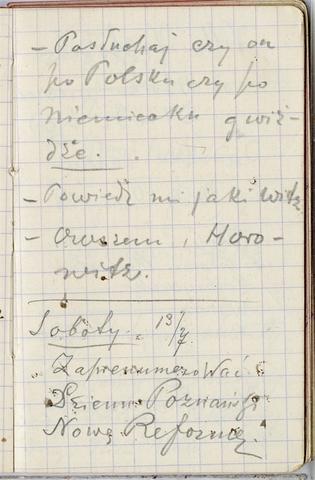 – Posłuchaj czy on
po Polsku czy po
niemiecku gwiż-
dże.
– Powiedz mi jaki witz
– Owszem, Horo-
witz.
Soboty. 13/7.
Zaprenumerować
Dzienn Poznański
Nową Reformę.